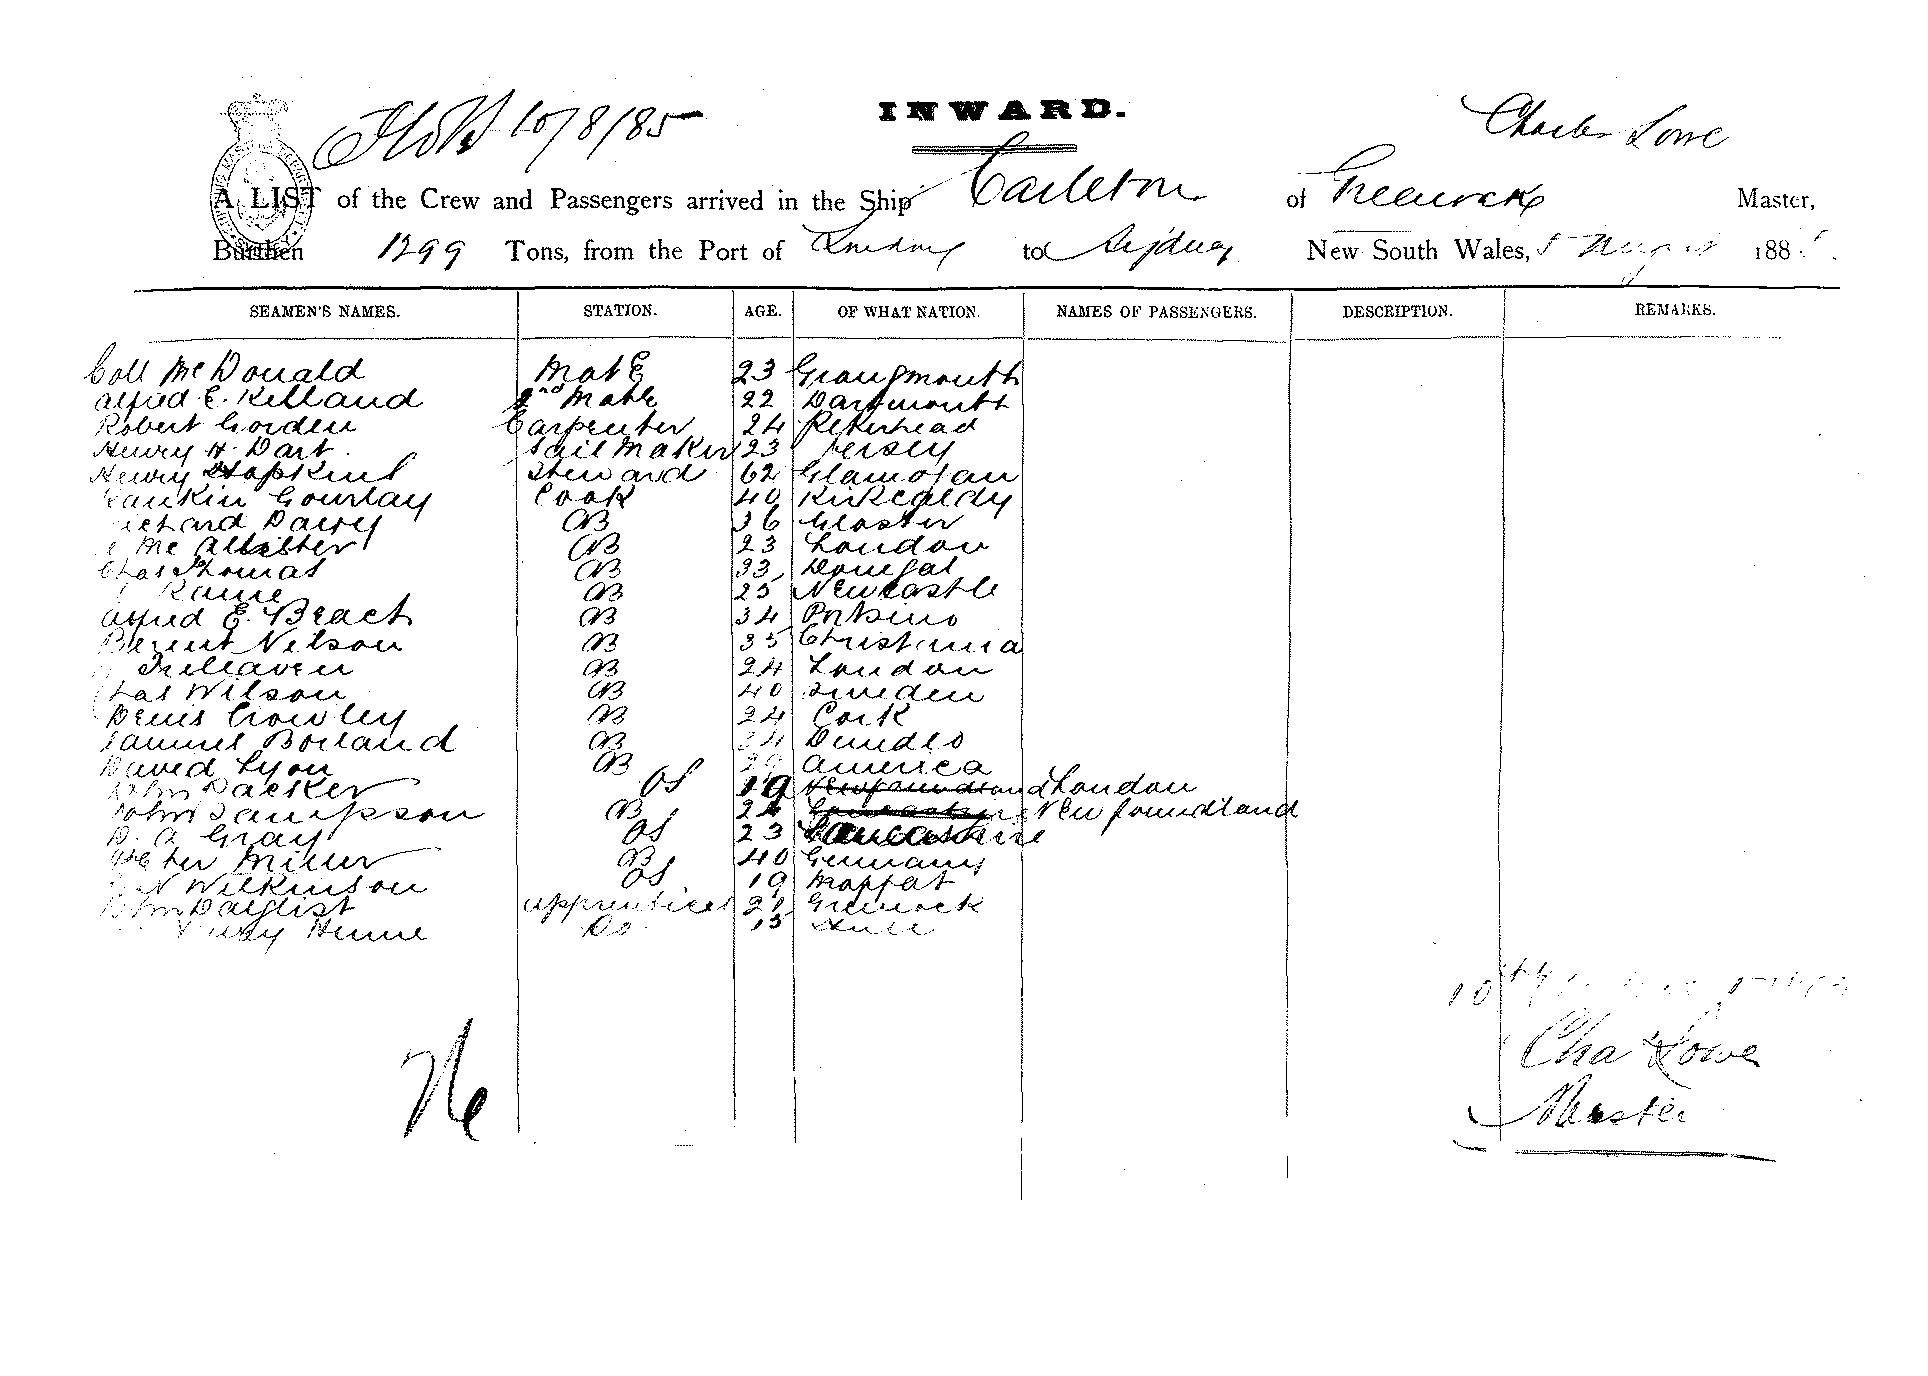 10/8/85 INWARD. Charles Lowe
A LIST of the Crew and Passengers arrived in the Ship Carleton of Greenock Master,
Burthen 1299 Tons, from the Port of London to Sydney New South Wales, 188
SEAMEN'S NAMES. STATION. AGE. OF WHAT NATION. NAMES OF PASSENGERS. DESCRIPTION. REMARKS.
Coll McDonald Mate 23 Grangmouth
Alfred E. Kelland 2nd Mate 22 Dartmouth
Robert Gorden Carpenter 24 Peterhead
Henry H. Dart Sail Maker 23 Jersey
Henry Hopkins Steward 62 Glamogan
Rankin Gourlay Cook 40 Kirkcaldy
Richard AB 36 Gloster
McAllister AB 23 London
Chas Thomas AB 33 Donegal
Kaine AB 25 Newcastle
Alfred E. Beach AB 34 Portsino
Nelson AB 35 Christiania
Trelleaven AB 24 London
Chas Wilson AB 40 Sweden
Denis Crowley AB 24 Cork
Samuel Borland AB 34 Dundee
David Lyon AB 29 America
John Packer OS 19 Newfoundland London
John Sampson AB 24 Newfoundland
D. A Gray OS 23 Lancashire
Peter Miller AB 40 Germany
Wilkinson OS 19 Moffat
John Daglist Apprentices 21 Greenock
Hume Do 15 Hull
10th
Cha Lowe
Master